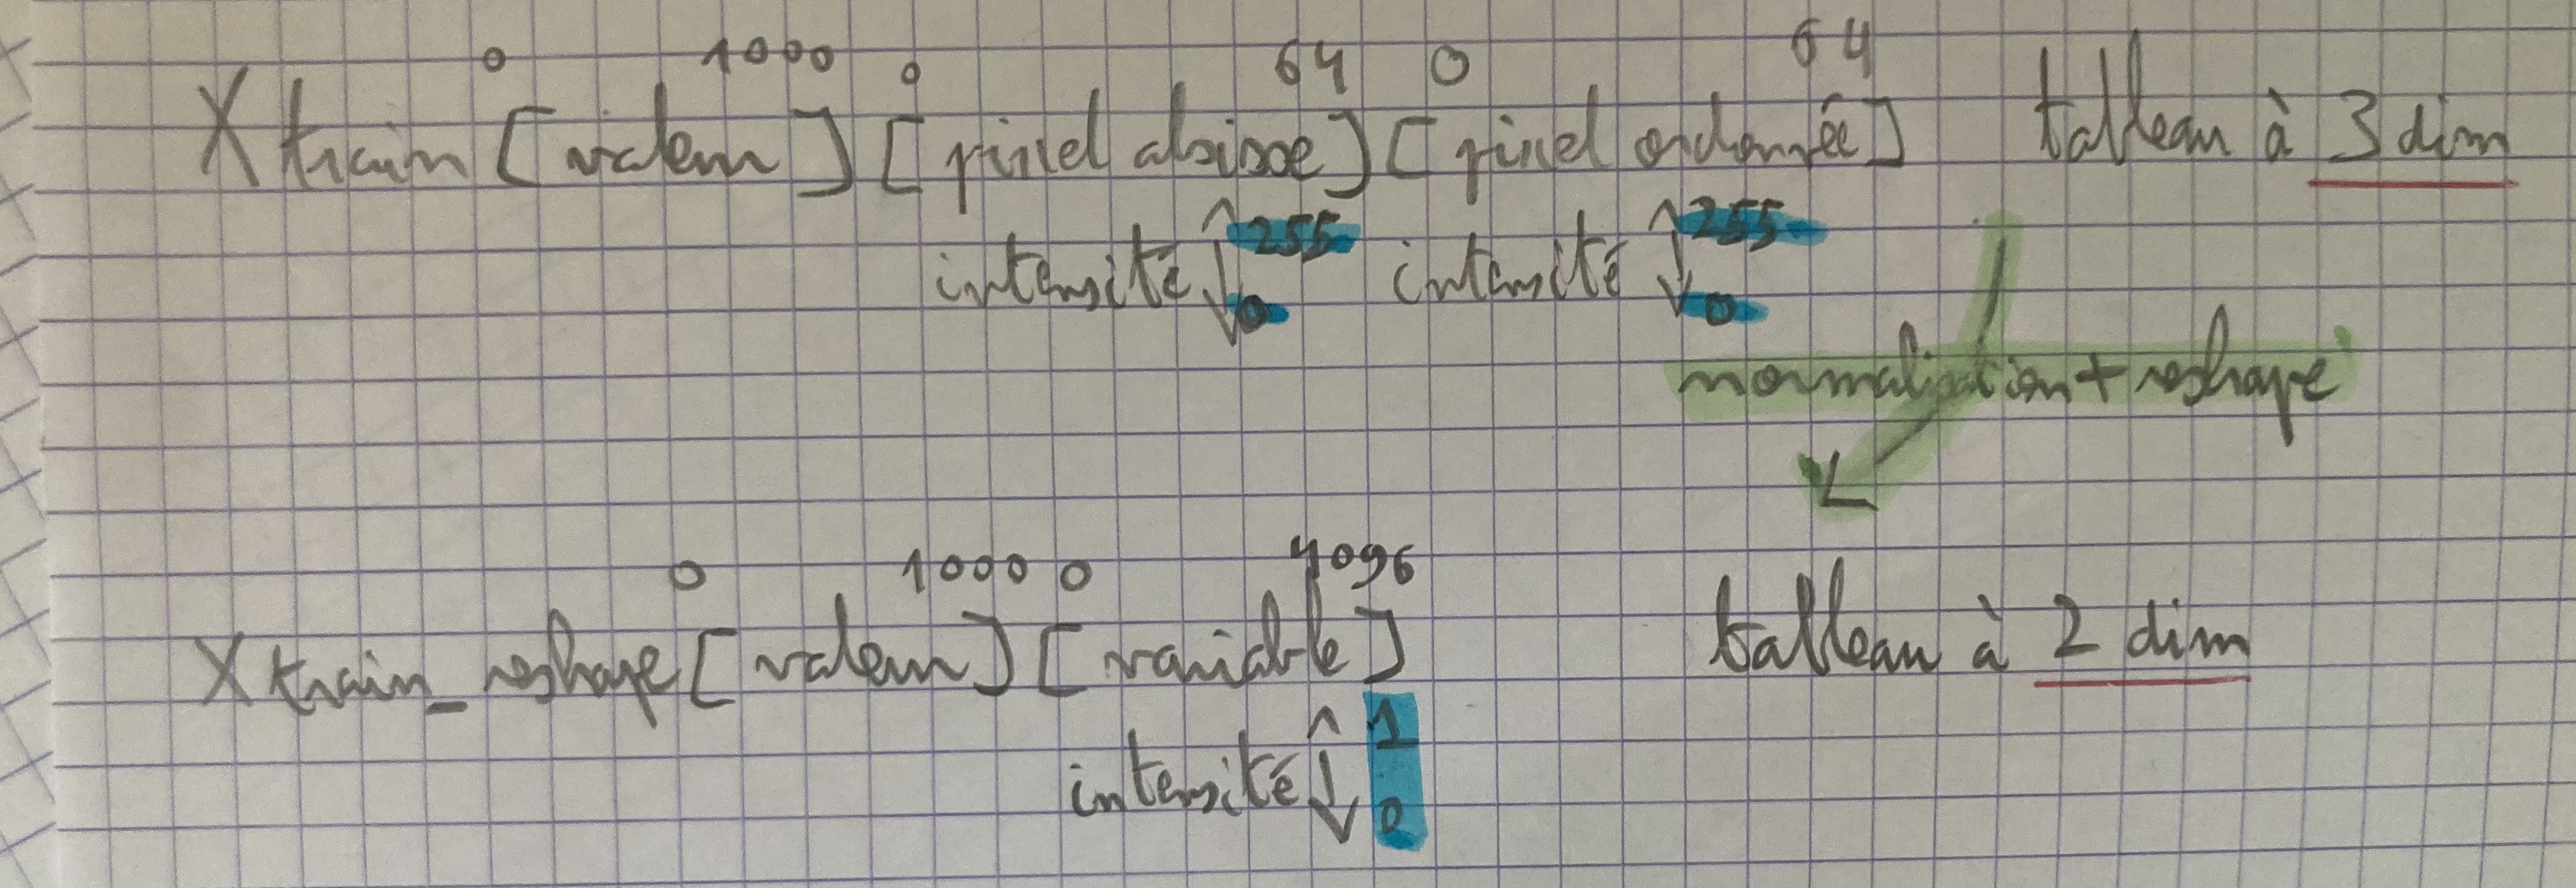 0 1000 0 64 0 64
X train [valeur] [pixel absisse] [pixel ordonnée] tableau à 3 dim
intensité 255 0 intensité 255 0
normalisation + reshape
0 1000 0 4096
X train_reshape [valeur] [variable] tableau à 2 dim
intensité 1 0